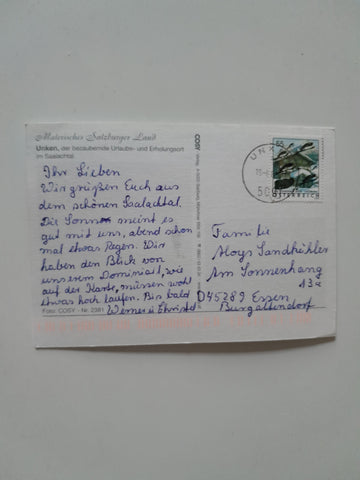 Malerisches Salzburger Land
Unken, der bezaubernde Urlaubs- und Erholungsort
im Saalachtal.
Ihr Lieben
Wir grüßen Euch aus
dem schönen Saalachtal.
Die Sonne meint es
gut mit uns, abend schon
mal etwas Regen. Wir
haben den Blick von
unserem Domizil, wie
auf der Karte, müssen wohl
etwas hoch laufen. Bis bald
Werner u Christel
Foto: COSY - Nr. 2381
COSY
UNK
509
ÖSTERREICH
Familie
Aloys Sandkühler
Am Sonnenhang
13
D45289 Essen
Burgaltendorf